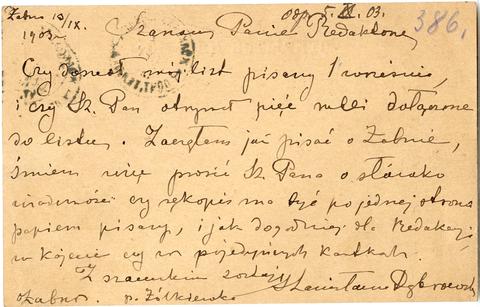 Żabno 13/IX.
1903
odp. 5. X. 03.
386.
Szanowny Panie Redaktorze
Czy doszedł mój list pisany 1 września,
i czy Sz. Pan otrzymał pięć rubli dołączone
do listu. Zacząłem już pisać o Żabnie,
śmiem więc prosić Sz. Pana o słówko
wiadomości czy rękopis ma być po jednej stronie
papieru pisany, i jak dogodniej dla Redakcji
w kajecie czy w pojedynczych kartkach.
Z szacunkiem zostaję Stanisława Dąbrowska
Żabno p. Żółkiewka